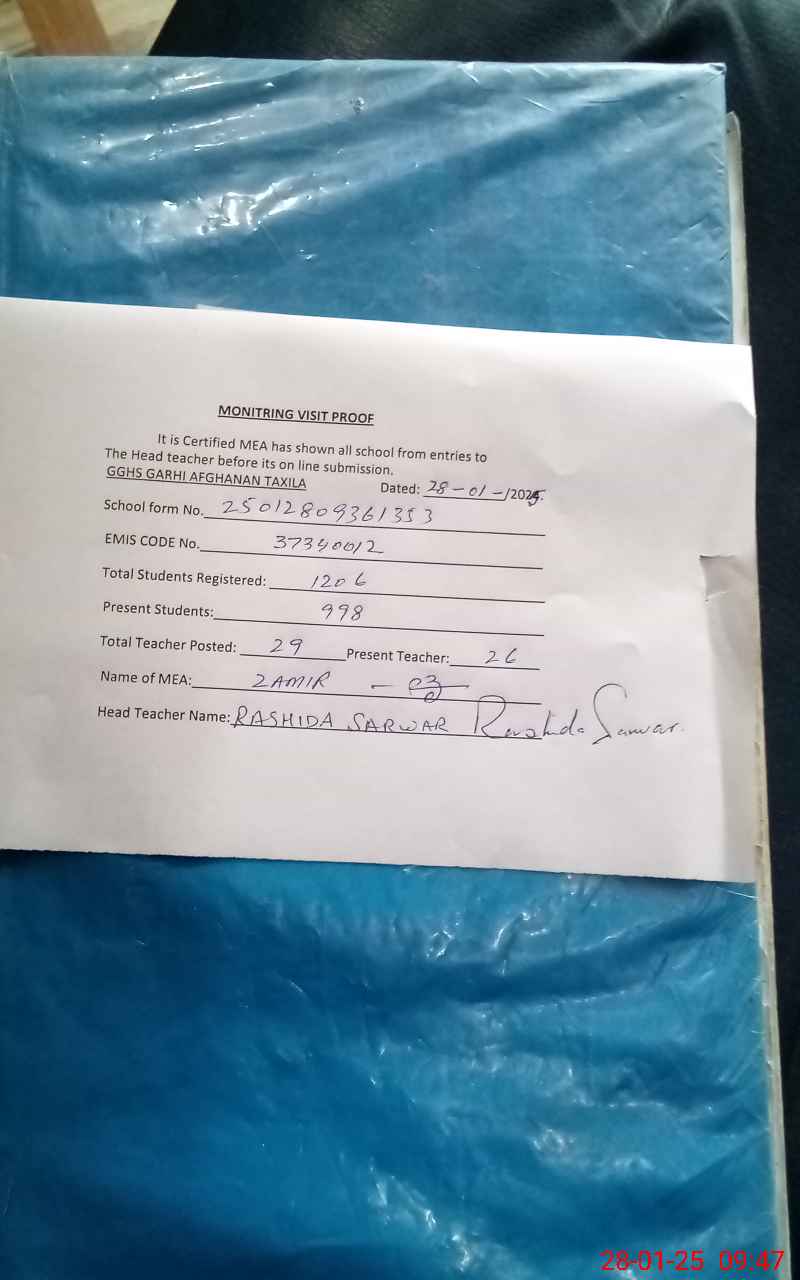 MONITRING VISIT PROOF
It is Certified MEA has shown all school from entries to
The Head teacher before its on line submission.
GGHS GARHI AFGHANAN TAXILA Dated: 28-01-/2025.
School form No. 25012809361353
EMIS CODE No. 37340012
Total Students Registered: 1206
Present Students: 998
Total Teacher Posted: 29 Present Teacher: 26
Name of MEA: ZAMIR
Head Teacher Name: RASHIDA SARWAR Rashida Sarwar.
28-01-25 09:47